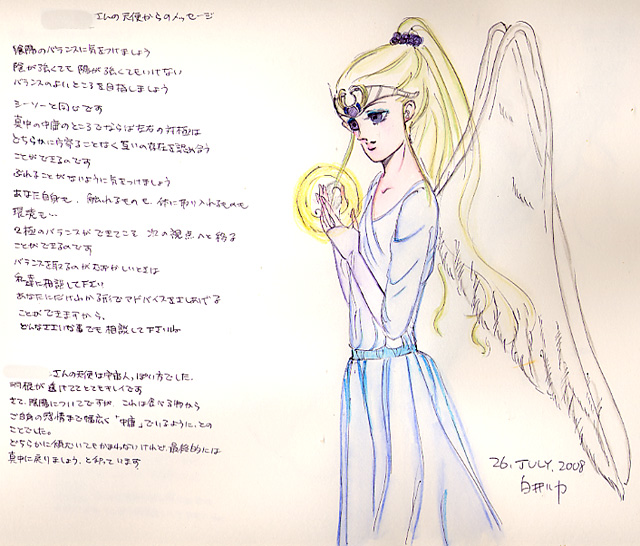 さんの天使からのメッセージ
陰陽のバランスに気をつけましょう
陰が強くても陽が強くてもいけない
バランスのよいところを目指しましょう
シーソーと同じです
真中の中庸のところでならば左右の対極は
どちらかに片寄ることなく互いの存在を認め合う
ことができるのです
ぶれることがないように気をつけましょう
あなた自身も、触れるものも、体に取り入れるものも
環境も…
2極のバランスができてこそ 次の視点へと移る
ことができるのです
バランスを取るのがむずかしいときは
私達に相談して下さい
あなたにだけわかる形でアドバイスをさしあげる
ことができますから、
どんなささいな事でも相談して下さいね
さんの天使は宇宙人っぽい方でした。
羽根が透けててとてもキレイです
さて、陰陽についてですが、これは食べる物から
ご自身の感情まで幅広く「中庸」でいるように、との
ことでした。
どちらかに傾いてもかまわないけれど、最終的には
真中に戻りましょう、と仰っています
26. JULY. 2008
白井ルカ